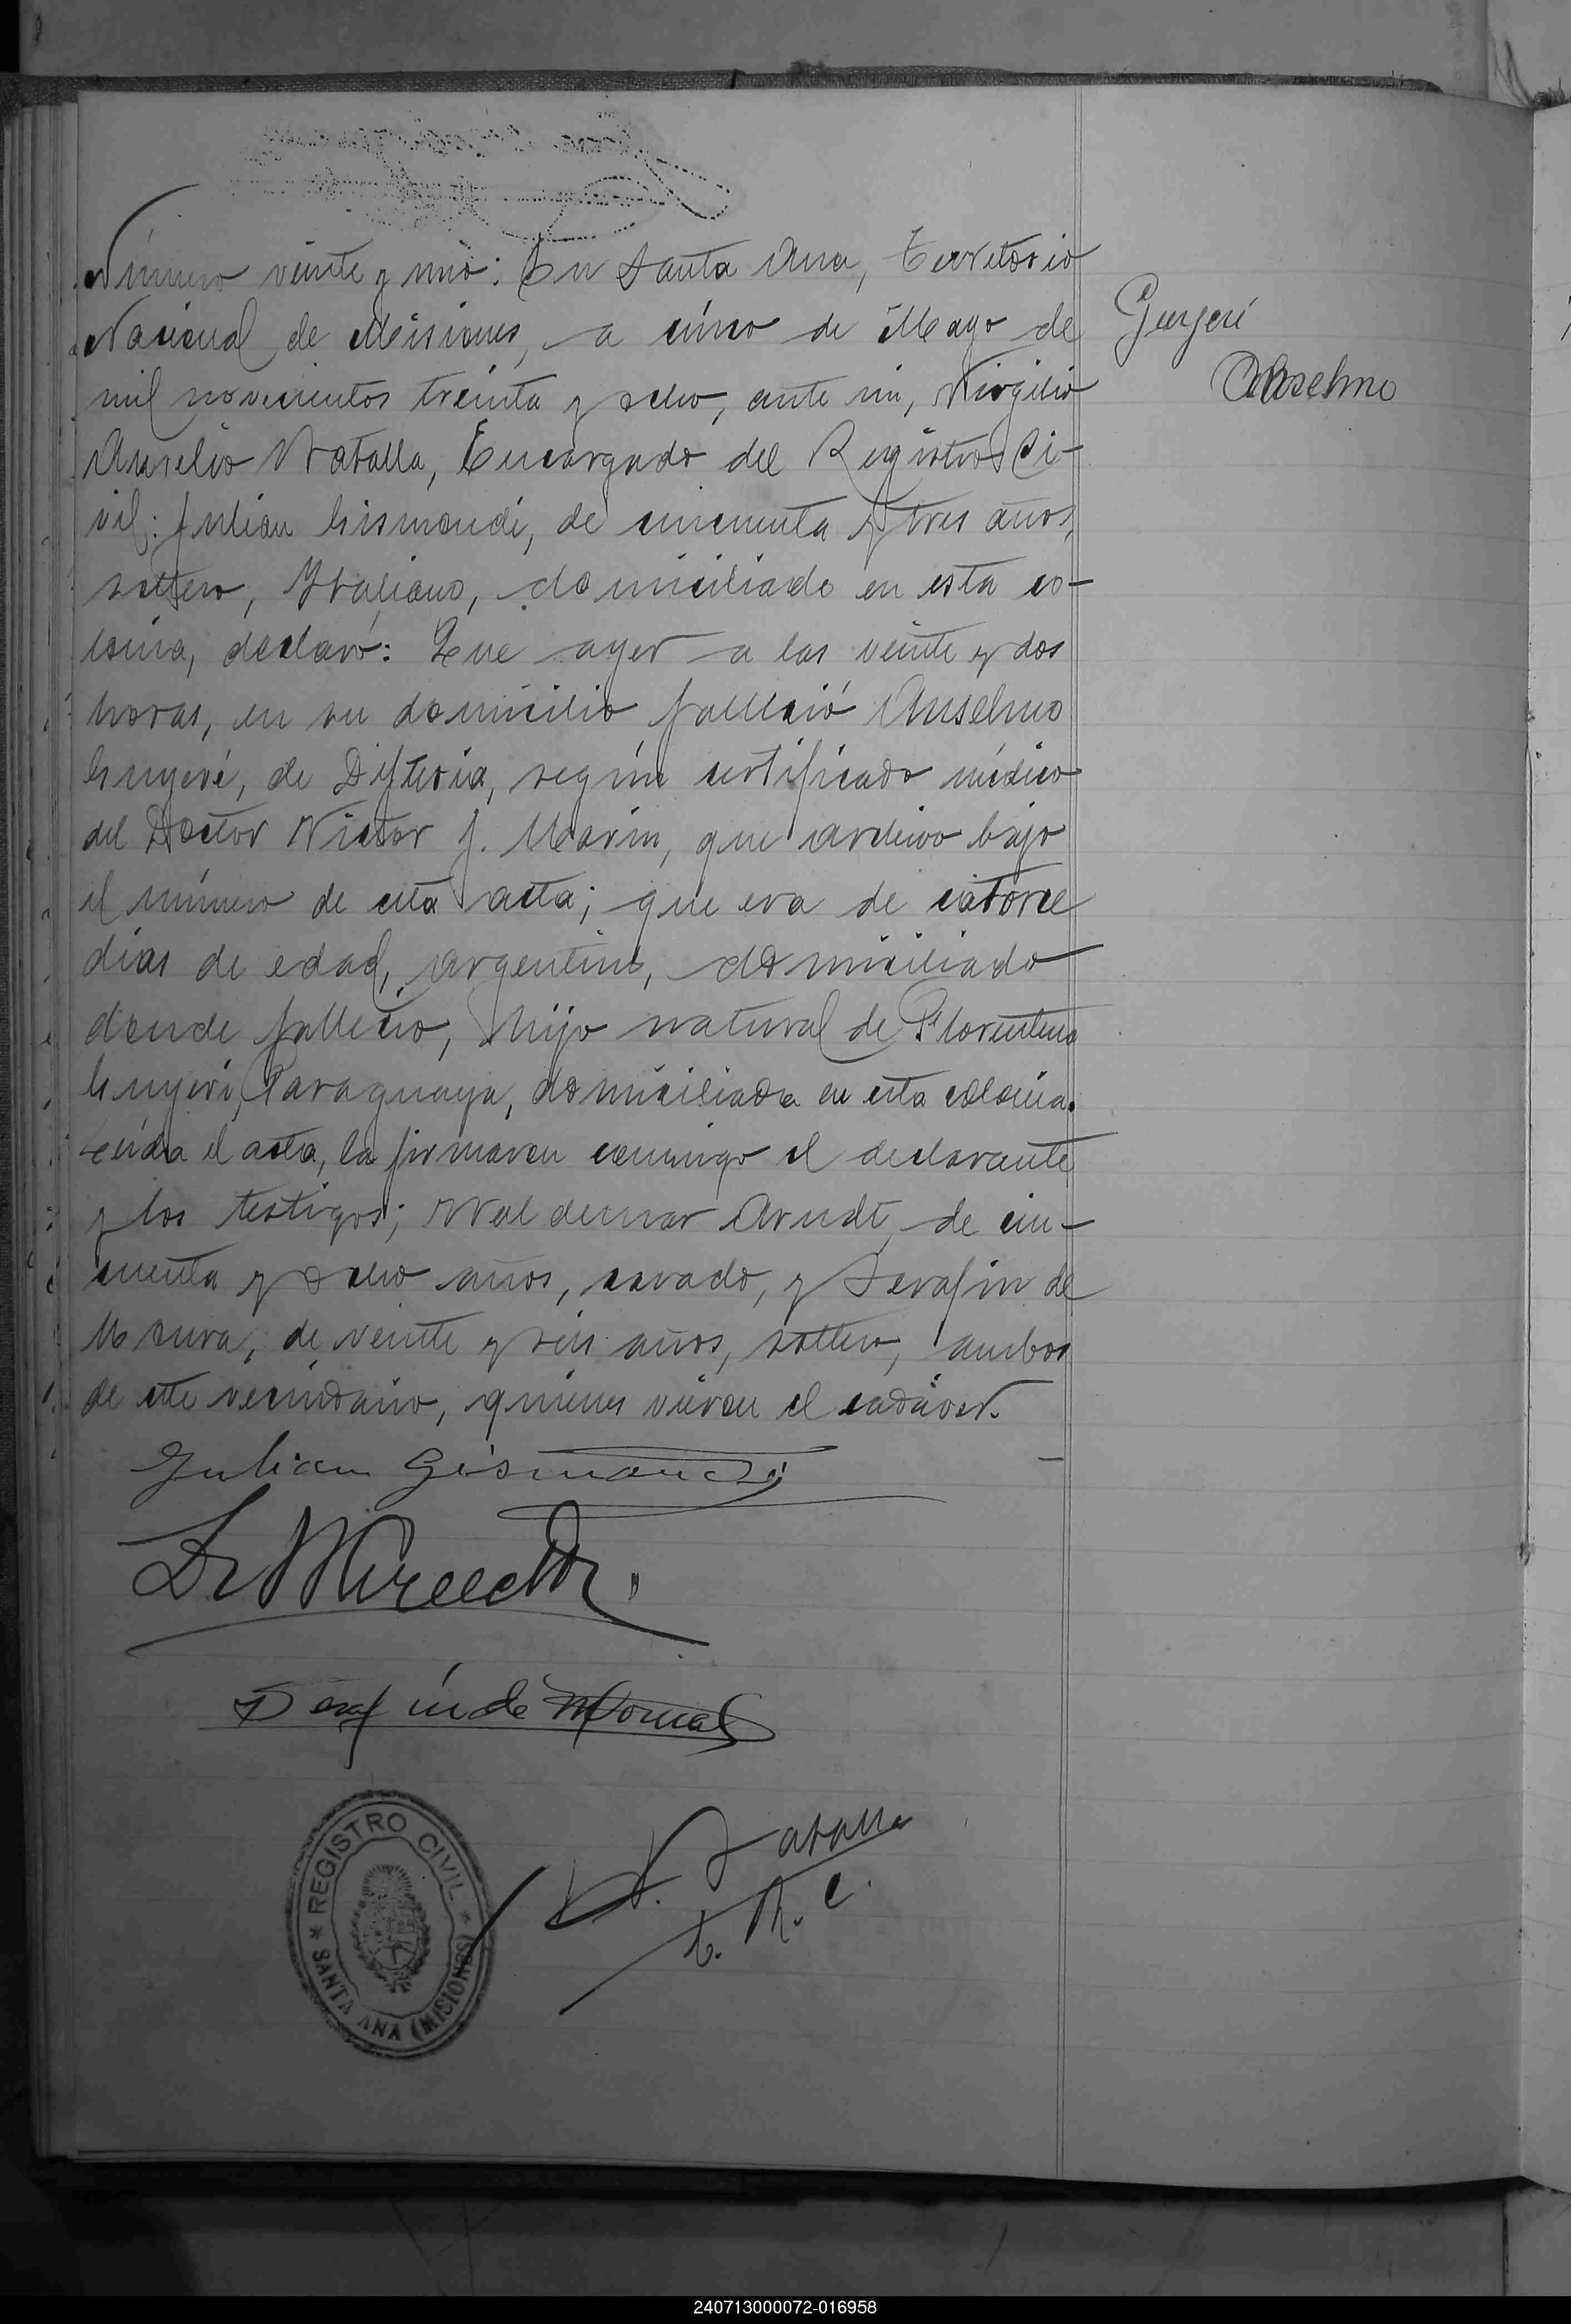 Número veinte y uno: En Santa Ana, Territorio
Nacional de Misiones, a cinco de Mayo de
mil novecientos treinta y ocho, ante mi, Virgilio
Aurelio Zatalla, Encargado del Registro Ci-
vil: Julian Gismondi, de cincuenta y tres años,
soltero, Italiano, domiciliado en esta co-
lonia, declaró: Que ayer a las veinte y dos
horas, en su domicilio falleció Anselmo
Gunyeré, de Difteria, según certificado médico
del Doctor Victor J. Marin, que archivo bajo
el número de esta acta; que era de catorce
dias de edad, argentino, domiciliado
donde falleció, hijo natural de Florentina
Gunyeré, Paraguaya, domiciliada en esta colonia.
Leida el acta, la firmaron conmigo el declarante
y los testigos; Waldemar Arndt, de cin-
cuenta y ocho años, casado, y Serafin de
Moura, de veinte y seis años, soltero, ambos
de este vecindario, quienes vieron el cadáver.
Julian Gismondi
Serafín de Moura
V. Zatalla
E. R. C.
REGISTRO CIVIL
SANTA ANA (MISIONES)
Gunyeré
Anselmo
240713000072-016958